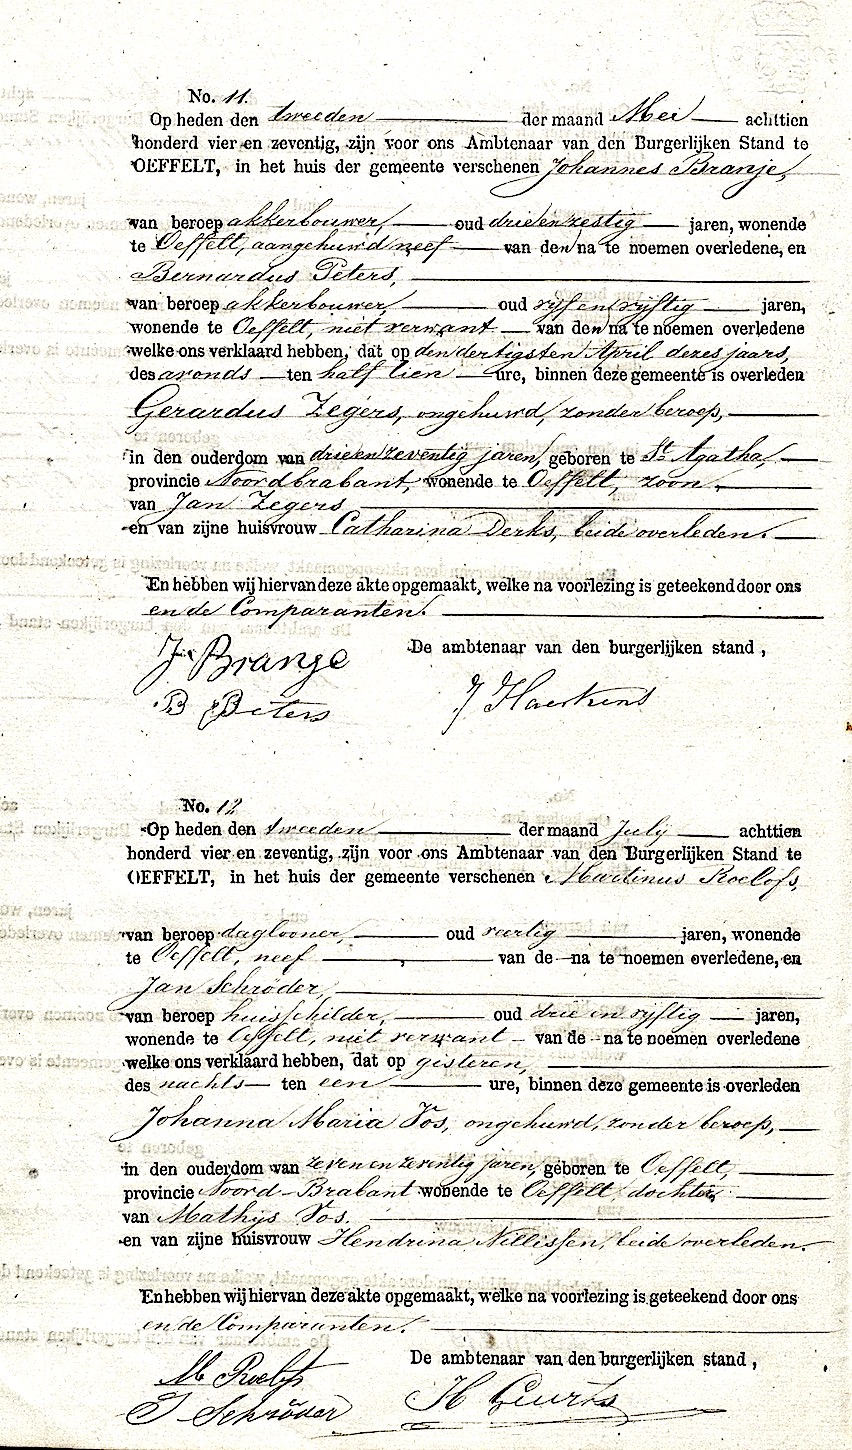 No. 11.
Op heden den tweeden der maand Mei achttien
honderd vier en zeventig, zijn voor ons Ambtenaar van den Burgerlijken Stand te
OEFFELT, in het huis der gemeente verschenen Johannes Branje,
van beroep akkerbouwer, oud drieenzestig jaren, wonende
te Oeffelt, aangehuwd neef van den na te noemen overledene, en
Bernardus Peters,
van beroep akkerbouwer, oud vyf en vyftig jaren,
wonende te Oeffelt, niet verwant van den na te noemen overledene
welke ons verklaard hebben, dat op den dertigsten April dezes jaars,
des avonds ten half tien ure, binnen deze gemeente is overleden
Gerardus Zegers, ongehuwd, zonder beroep,
in den ouderdom van drieenzeventig jaren, geboren te St. Agatha,
provincie Noordbrabant, wonende te Oeffelt, zoon
van Jan Zegers
en van zijne huisvrouw Catharina Derks, beide overleden.
En hebben wij hiervan deze akte opgemaakt, welke na voorlezing is geteekend door ons
en de Comparanten.
De ambtenaar van den burgerlijken stand,
J Brange
B Peters
No. 12
Op heden den tweeden der maand July achttien
honderd vier en zeventig, zijn voor ons Ambtenaar van den Burgerlijken Stand te
OEFFELT, in het huis der gemeente verschenen Martinus Roelofs,
van beroep daglooner, oud veertig jaren, wonende
te Oeffelt, neef van de na te noemen overledene, en
Jan Schröder,
van beroep huisschilder, oud drie en vyftig jaren,
wonende te Oeffelt, niet verwant van de na te noemen overledene
welke ons verklaard hebben, dat op gisteren,
des nachts ten een ure, binnen deze gemeente is overleden
Johanna Maria Vos, ongehuwd, zonder beroep,
in den ouderdom van zevenenzeventig jaren, geboren te Oeffelt,
provincie Noord-Brabant wonende te Oeffelt, dochter
van Mathijs Vos.
en van zijne huisvrouw Hendrina Nellissen, beide overleden.
En hebben wij hiervan deze akte opgemaakt, welke na voorlezing is geteekend door ons
en de Comparanten.
De ambtenaar van den burgerlijken stand,
M Roelofs
J Schröder
H Geurts